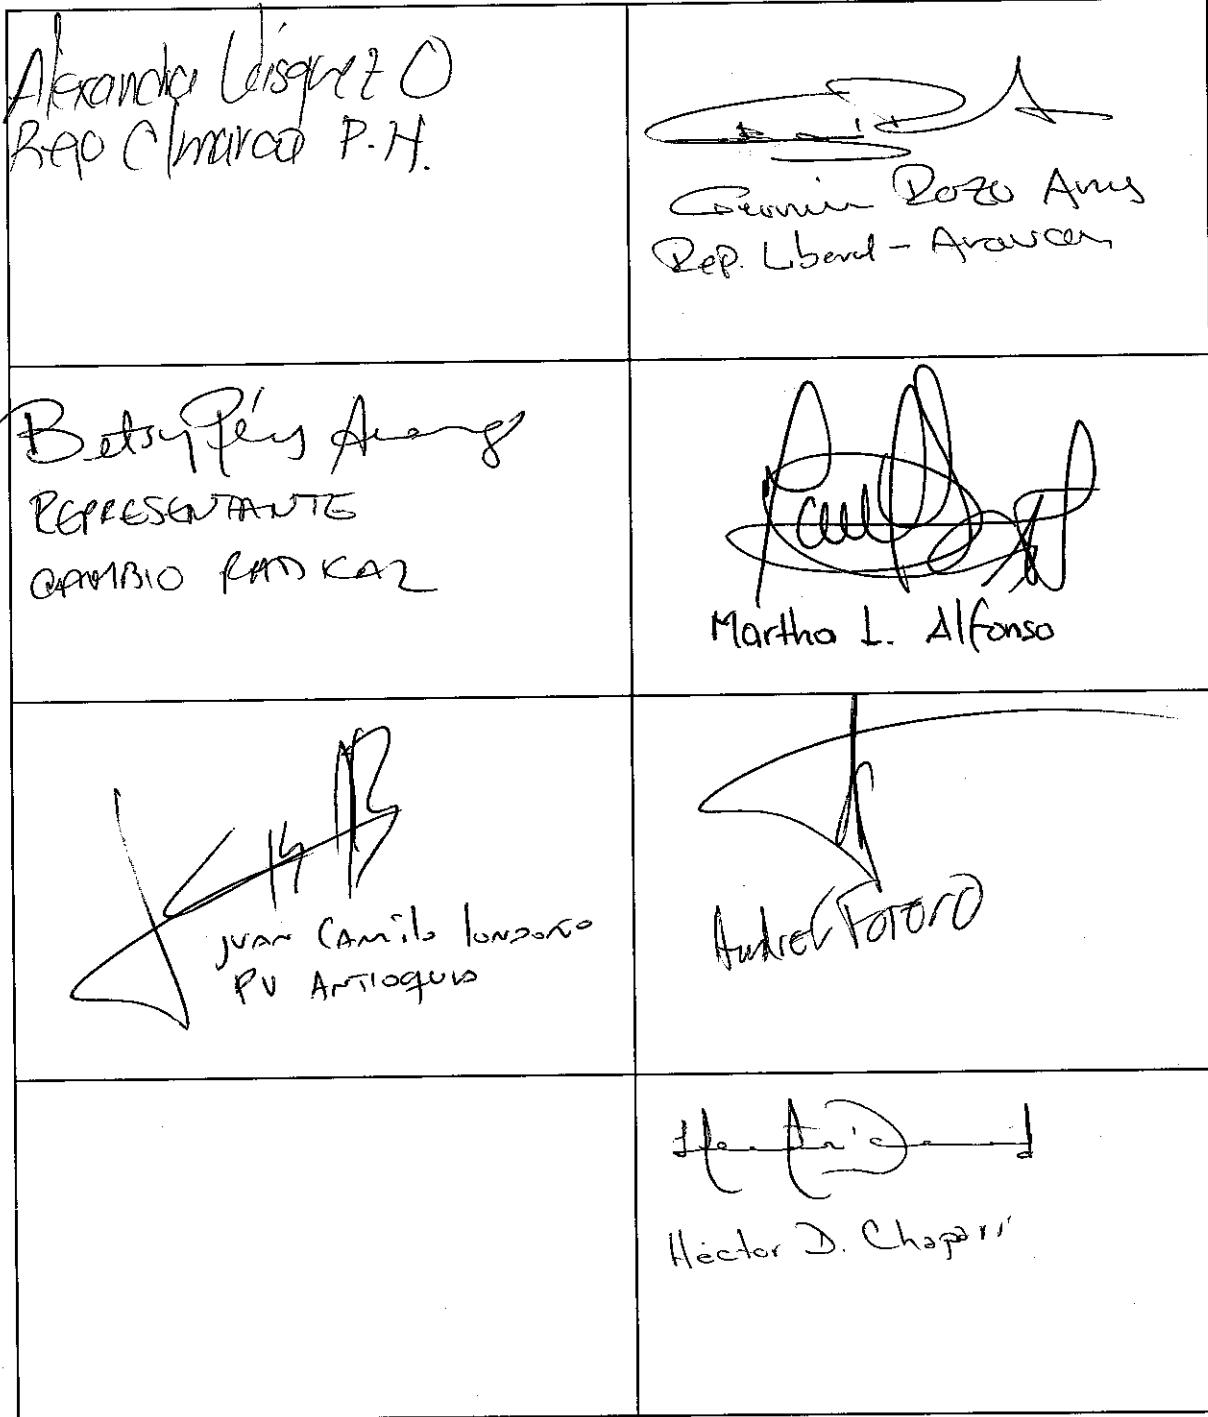 Alexandra Vásquez O
Rep C/marca P.H.
Germán Rozo Anís
Rep. Liberal - Arauca
Betsy Pérez Arango
REPRESENTANTE
CAMBIO RADICAL
Martha L. Alfonso
JUAN CAMILO LONDOÑO
PV ANTIOQUIA
Andrés Forero
Héctor D. Chaparr